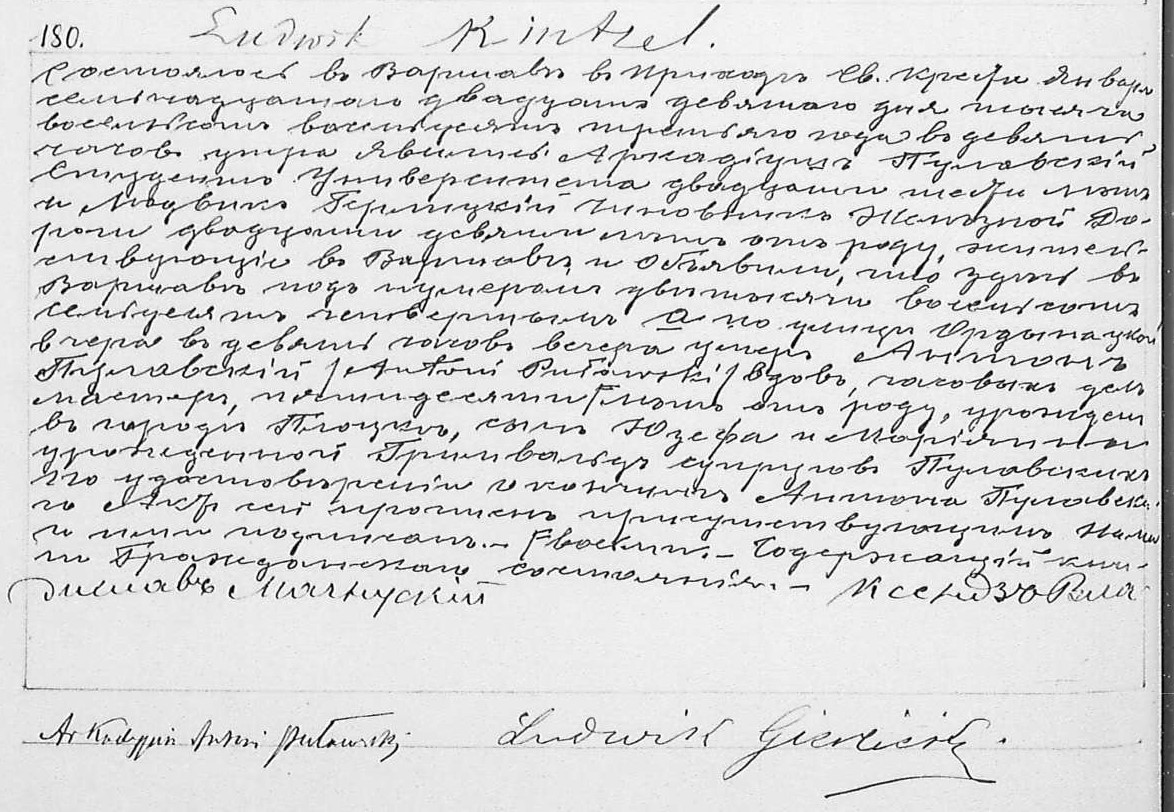 180.
Ludwik Kintzel.
Состоялось въ Варшавѣ въ приходѣ Св. Креста Января
семнадцатаго двадцать девятаго дня тысяча
восемьсотъ восемьдесятъ третьяго года въ девять
часовъ утра явились Аркадіушъ Пулавскій
Студентъ Университета двадцати шести лѣтъ
и Людвикъ Герлицкій чиновникъ Желѣзной До-
роги двадцати девяти лѣтъ отъ роду, житель-
ствующіе въ Варшавѣ, и объявили, что здѣсь въ
Варшавѣ подъ нумеромъ двѣ тысячи восемьсотъ
семьдесятъ четвертымъ а по улицѣ Ордынацкой
вчера въ девять часовъ вечера умеръ Антонъ
Пулавскій /Antoni Puławski/ Вдовъ, часовыхъ дѣлъ
мастеръ, пятидесяти лѣтъ отъ роду, урожден
въ городѣ Плоцкѣ, сынъ Юзефа и Маріянны
урожденной Гринвальдъ супруговъ Пулавскихъ
По удостовѣреніи о кончинѣ Антона Пулавска-
го Актъ сей прочтенъ присутствующимъ нами
и ими подписанъ. — восьми. — Содержащій кни-
ги Гражданскаго состоянія. —
Ксендзъ Вла-
диславъ
Arkadyusz Antoni Puławski
Ludwik Gierlicki.